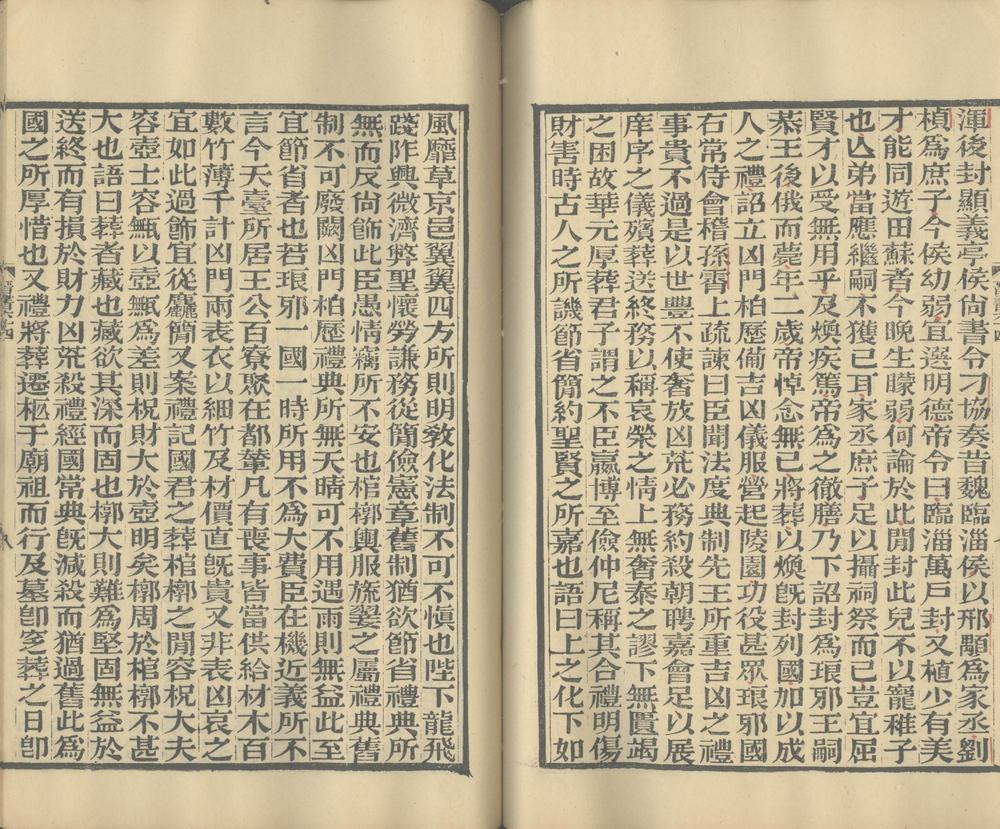 渾後封顯義亭侯尚書令刁協奏昔魏臨淄侯以邢顒爲家丞劉
楨爲庶子今侯幼弱宜選明德帝令曰臨淄萬戶封又植少有美
才能同遊田蘇者今晚生矇弱何論於此閒封此兒不以寵稚子
也亾弟當應繼嗣不獲已耳家丞庶子足以攝祠祭而已豈宜屈
賢才以受無用乎及煥疾篤帝爲之徹膳乃下詔封爲琅邪王嗣
恭王後俄而薨年二歲帝悼念無已將葬以煥旣封列國加以成
人之禮詔立凶門柏歷備吉凶儀服營起陵園功役甚眾琅邪國
右常侍會稽孫霄上疏諫曰臣聞法度典制先王所重吉凶之禮
事貴不過是以世豐不使奢放凶荒必務約殺朝聘嘉會足以展
庠序之儀殯葬送終務以稱哀榮之情上無奢泰之謬下無匱竭
之困故華元厚葬君子謂之不臣嬴博至儉仲尼稱其合禮明傷
財害時古人之所譏節省簡約聖賢之所嘉也語曰上之化下如
風靡草京邑翼翼四方所則明敎化法制不可不愼也陛下龍飛
踐阼興微濟弊聖懷勞謙務從簡儉憲章舊制猶欲節省禮典所
無而反尙飾此臣愚情竊所不安也棺槨輿服旒翣之屬禮典舊
制不可廢闕凶門柏歷禮典所無天晴可不用遇雨則無益此至
宜節省者也若琅邪一國一時所用不爲大費臣在機近義所不
言今天臺所居王公百寮聚在都輦凡有喪事皆當供給材木百
數竹薄千計凶門兩表衣以細竹及材價直旣貴又非表凶哀之
宜如此過飾宜從麤簡又案禮記國君之葬棺槨之閒容柷大夫
容壺士容甒以壺甒爲差則柷財大於壺明矣槨周於棺槨不甚
大也語曰葬者藏也藏欲其深而固也槨大則難爲堅固無益於
送終而有損於財力凶荒殺禮經國常典旣減殺而猶過舊此爲
國之所厚惜也又禮將葬遷柩于廟祖而行及墓卽窆葬之日卽